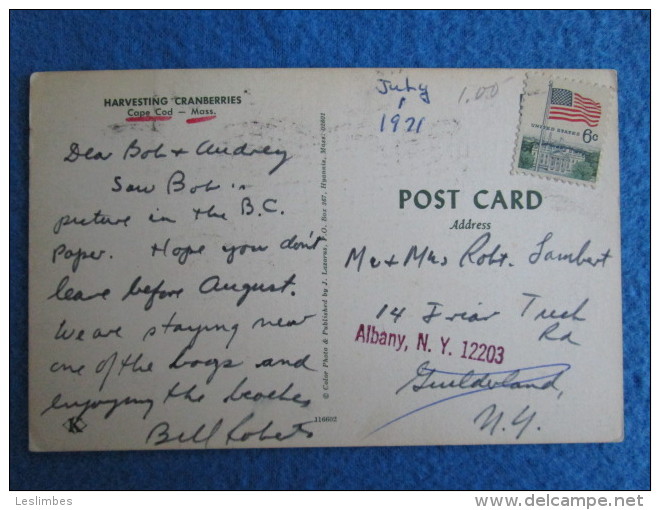 HARVESTING CRANBERRIES
Cape Cod — Mass.
Dear Bob & Audrey
Saw Bob's
picture in the B.C.
paper. Hope you don't
leave before August.
We are staying near
one of the bogs and
enjoying the beaches
Bill Roberts
K
116602
© Color Photo & Published by J. Lazarus, P.O. Box 267, Hyannis, Mass. 02601
July
1
1971
1.00
UNITED STATES
6c
POST CARD
Address
Mr & Mrs Robt. Lambert
14 Friar Tuck
Rd
Albany, N. Y. 12203
Guilderland,
N.Y.
Leslimbes
www.delcampe.net